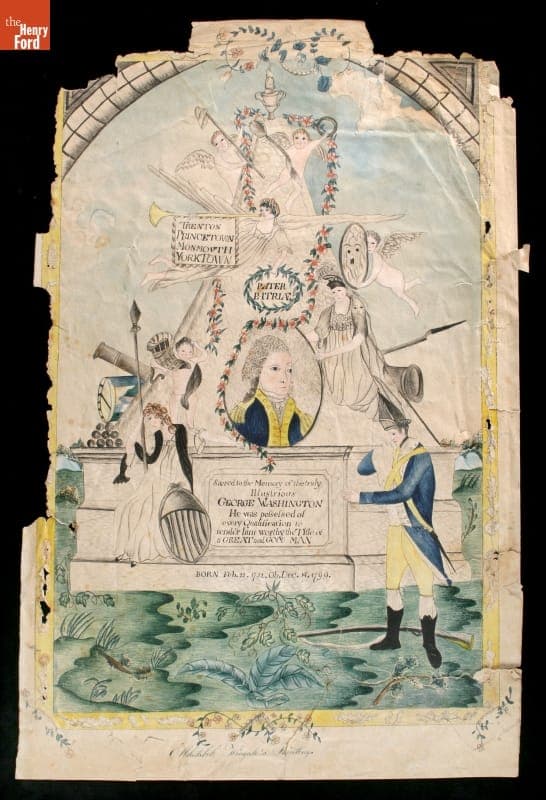 the
Henry
Ford
TRENTON
PRINCETOWN
MONMOUTH
YORKTOWN
PATER
PATRIÆ
Sacred to the Memory of the truly
Illustrious
GEORGE WASHINGTON
He was possessed of
every Qualification to
render him worthy the Title of
a GREAT and GOOD MAN
BORN Feb. 22, 1732, Ob. Dec. 14, 1799.
Mehitabel Wingate's Painting